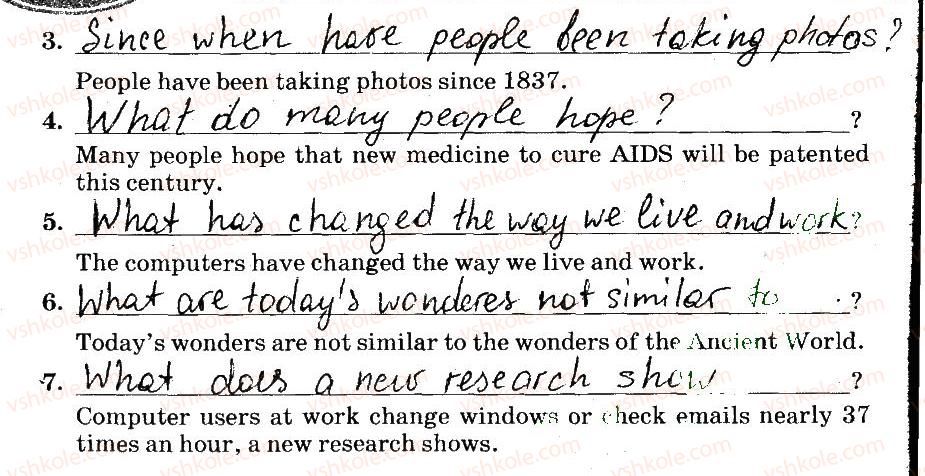 3. Since when have people been taking photos?
People have been taking photos since 1837.
4. What do many people hope? ?
Many people hope that new medicine to cure AIDS will be patented
this century.
5. What has changed the way we live and work?
The computers have changed the way we live and work.
6. What are today's wonderes not similar to ?
Today's wonders are not similar to the wonders of the Ancient World.
7. What does a new research show ?
Computer users at work change windows or check emails nearly 37
times an hour, a new research shows.